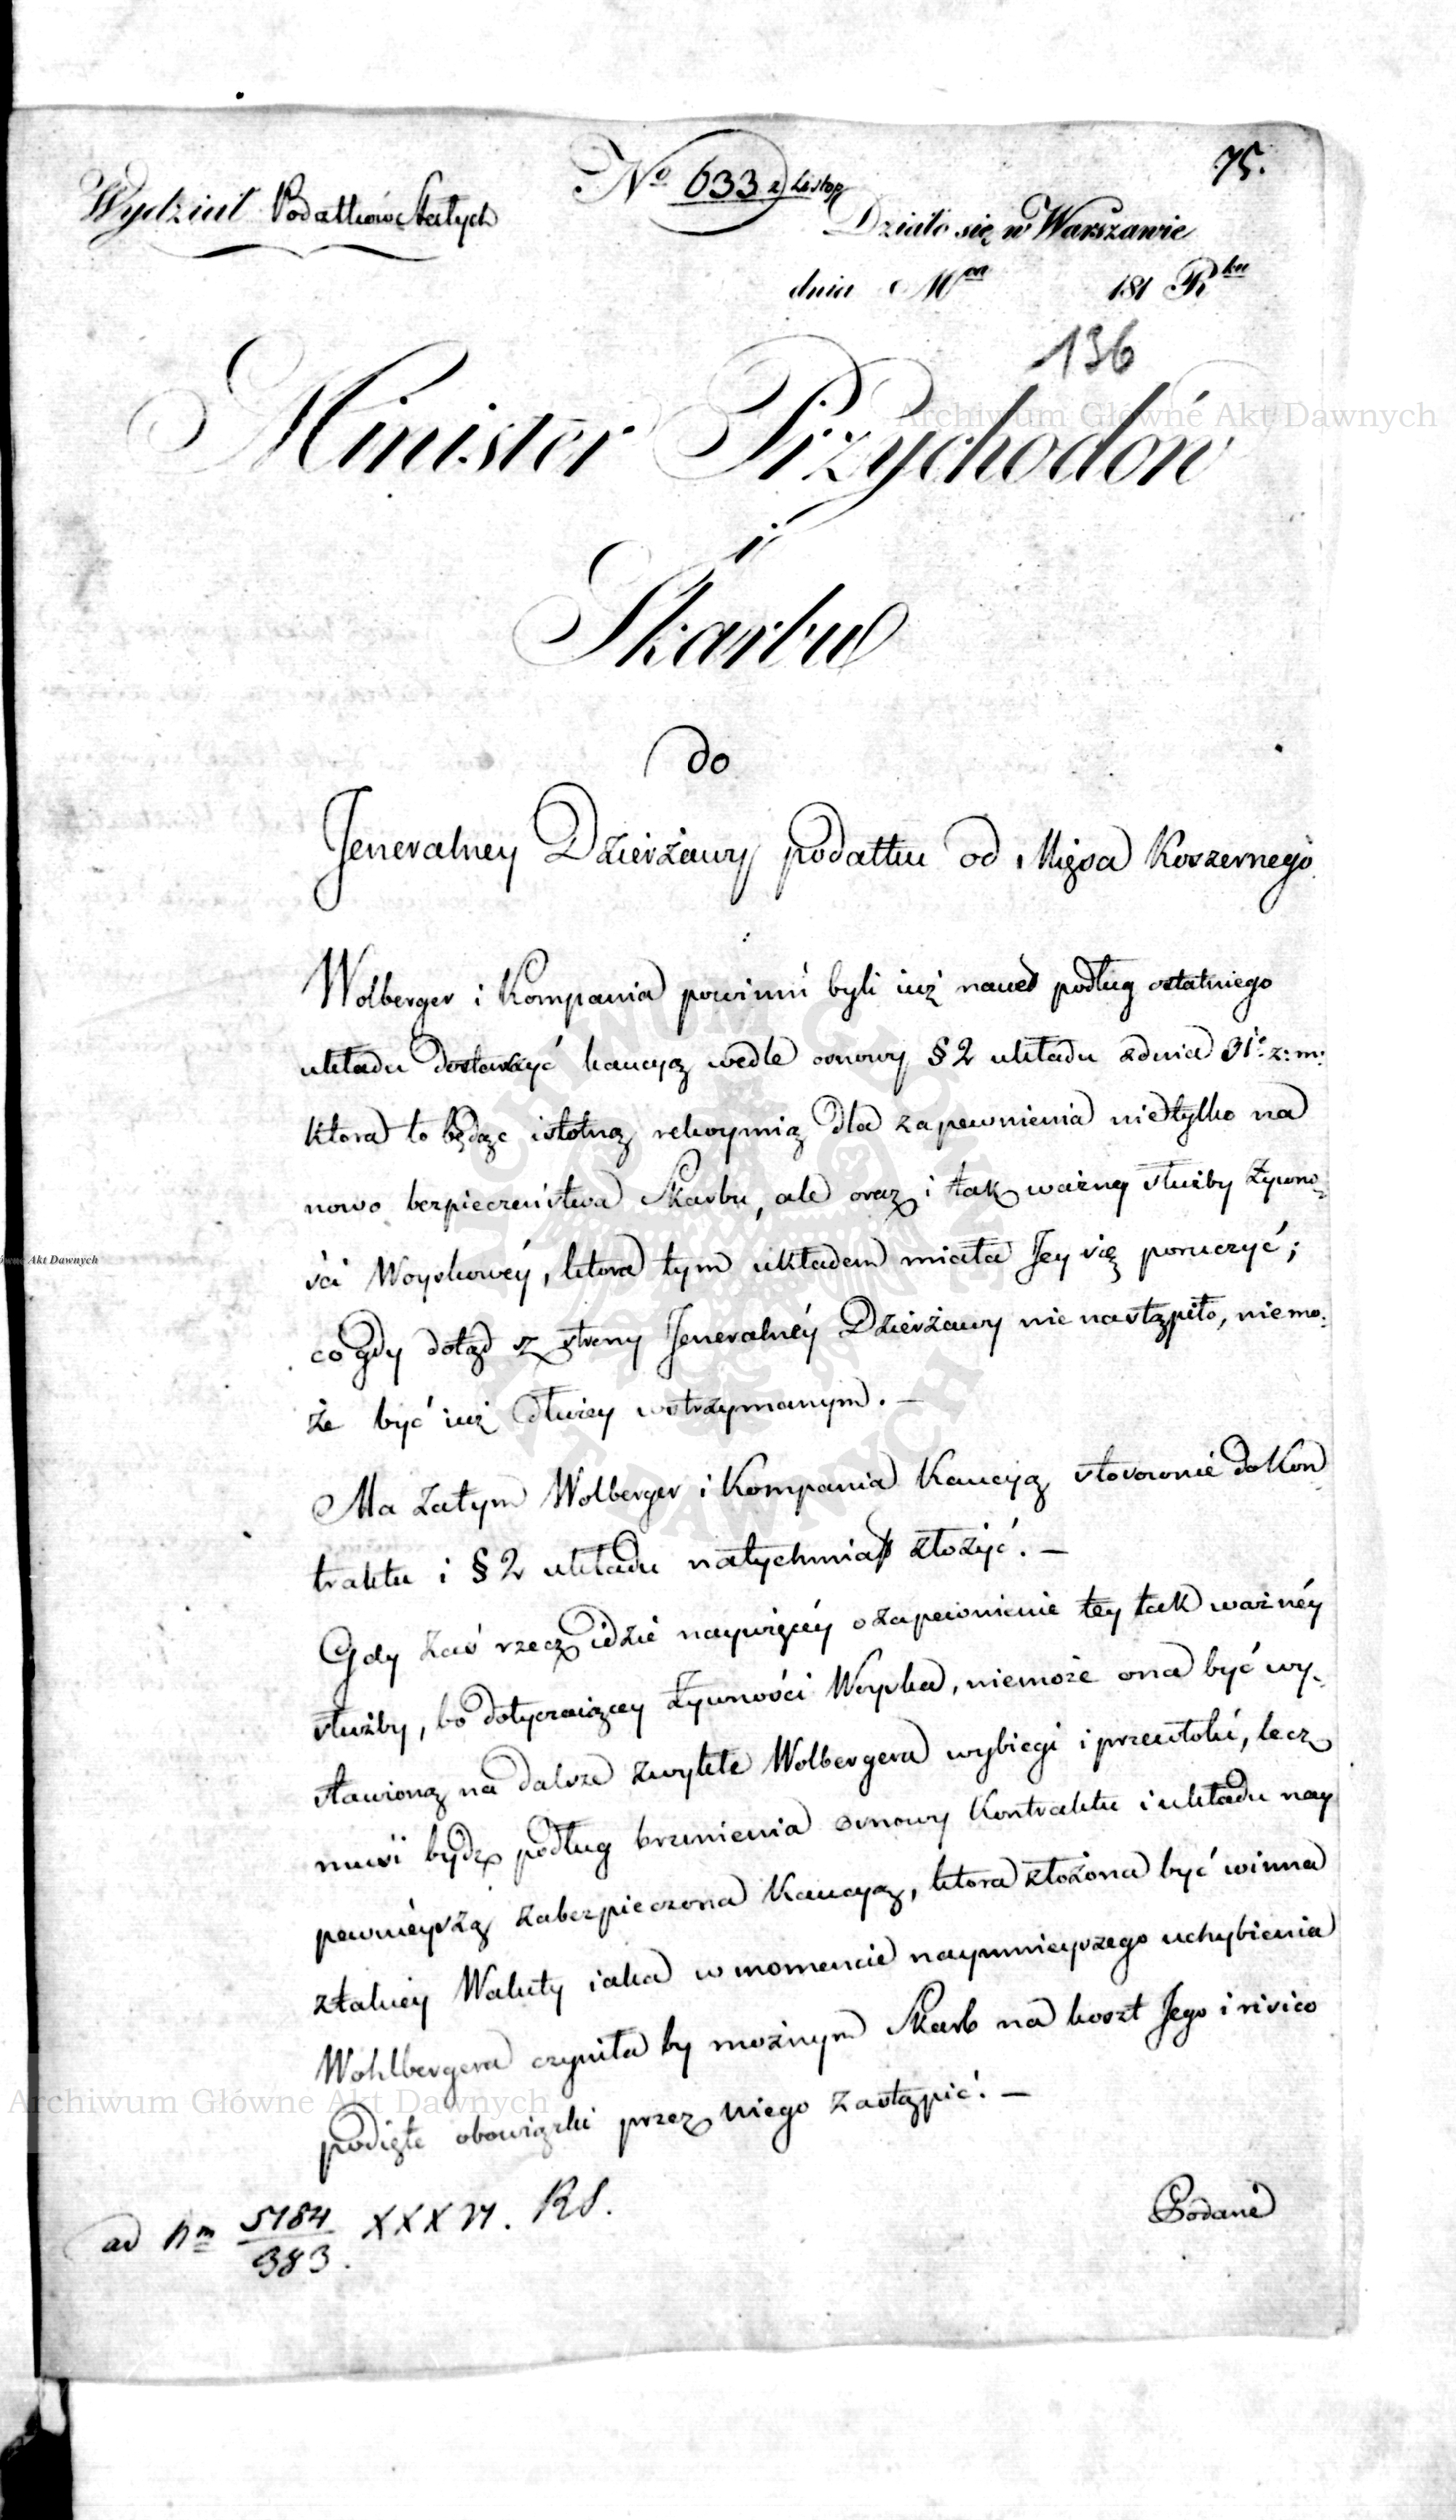 75.
Wydział Podatków Stałych
No 633 z Listop
Działo się w Warszawie
dnia Mca 181 Rku
136
Minister Przychodów
i
Skarbu
do
Jeneralney Dzierżawy podatku od Mięsa Koszernego
Wolberger i Kompania powinni byli iuż nawet podług ostatniego
układu dostawić kaucyą wedle osnowy § 2 układu zdnia 31o z: m:
ktora to będąc istotną rekoymią dla zapewnienia nietylko na
nowo bezpieczeństwa Skarbu, ale oraz i tak ważney służby Żywno-
ści Woyskowéy, ktora tym układem miała Jey się poruczyć;
co gdy dotąd z strony Jeneralnéy Dzierżawy nie nastąpiło, niemo-
że być iuż dłużey wstrzymanym. —
Ma zatym Wolberger i Kompania Kaucyą stosownie do Kon
traktu i § 2 układu natychmiast złożyć. —
Gdy zaś rzecz idzie naywięcéy o zapewnienie tey tak ważnéy
służby, bo dotycząiącey Żywności Woyska, niemoże ona być wy-
stawioną na dalsze zwykłe Wolbergera wybiegi i przewłoki, lecz
musi bydź podług brzmienia osnowy Kontraktu i układu nay
pewnieyszą zabezpieczona Kaucyą, ktora złożona być winna
ztakiey Waluty iaka w momencie naymnieyszego uchybienia
Wohlbergera czyniła by możnym Skarb na koszt Jego i risico
podięte obowiązki przez niego zastąpić. —
Podane
ad Nm 5184/383. XXXVI. RS.
Archiwum Główne Akt Dawnych
Archiwum Główne Akt Dawnych
ówne Akt Dawnych
ARCHIWUM GŁÓWNE AKT DAWNYCH